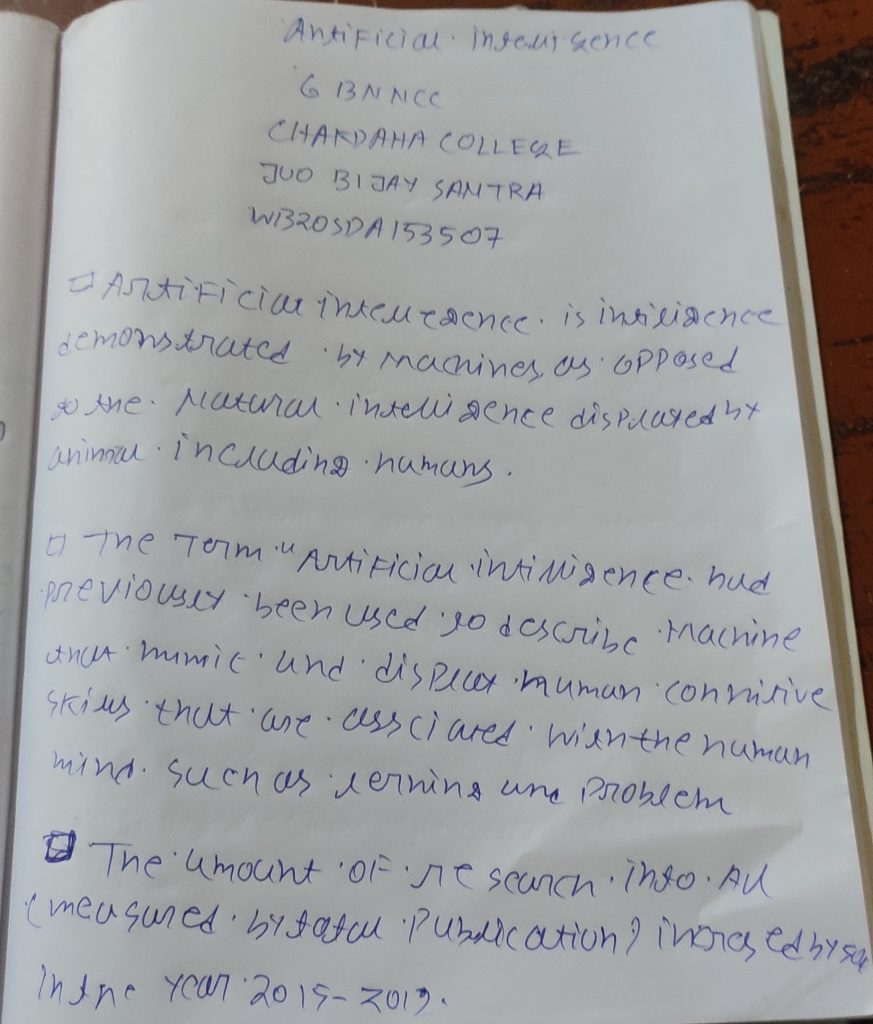 Artificial intelligence
6 BN NCC
CHAKDAHA COLLEGE
JUO BIJAY SANTRA
WB20SDA153507
Artificial intellegence is intiligence
demonstrated by machines, as opposed
to the Natural intelligence displayed by
animal including humans.
The Term "Artificial intilligence had
previously been used to describe Machine
that mimic and display human connitive
skills that are assciated with the human
mind. Such as lerning and problem
The amount OF research into AI
(measured by total Publication) incresed by
in the year 2015-2019.